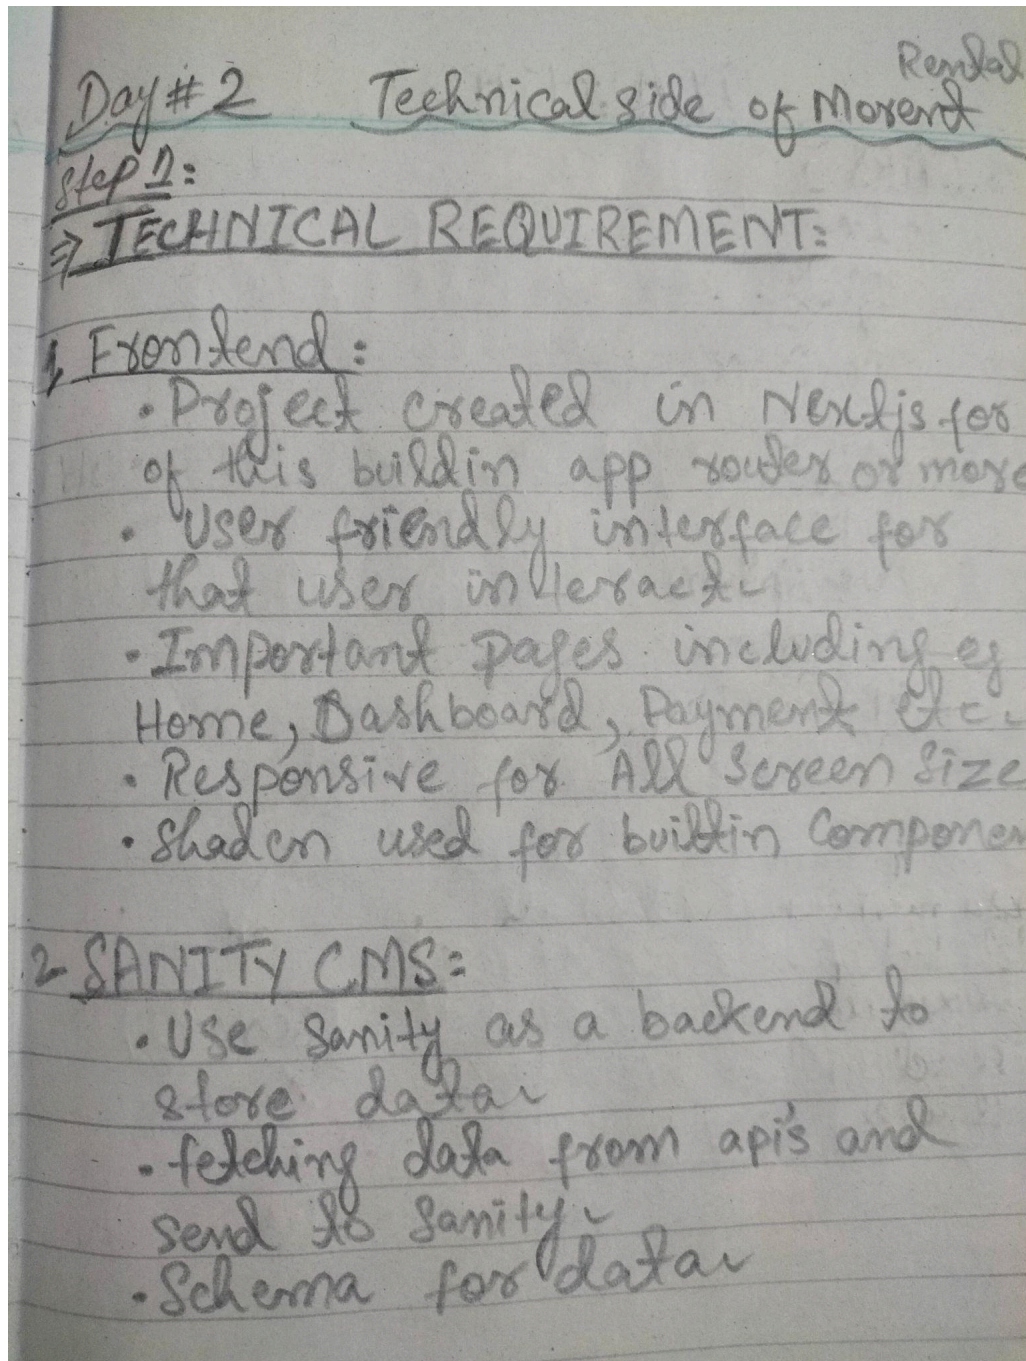 Rental
Day # 2 Technical side of Morent
Step 1:
⇒ TECHNICAL REQUIREMENT:
1, Frontend:
• Project created in Nextjs for
of this buildin app router or more
• User friendly interface for
that user interact.
• Important pages including eg
Home, Dashboard, Payment etc.
• Responsive for All Screen Size
• Shadcn used for builtin Componen
2 SANITY CMS:
• Use Sanity as a backend to
store data.
• fetching data from api's and
send to Sanity.
• Schema for data.